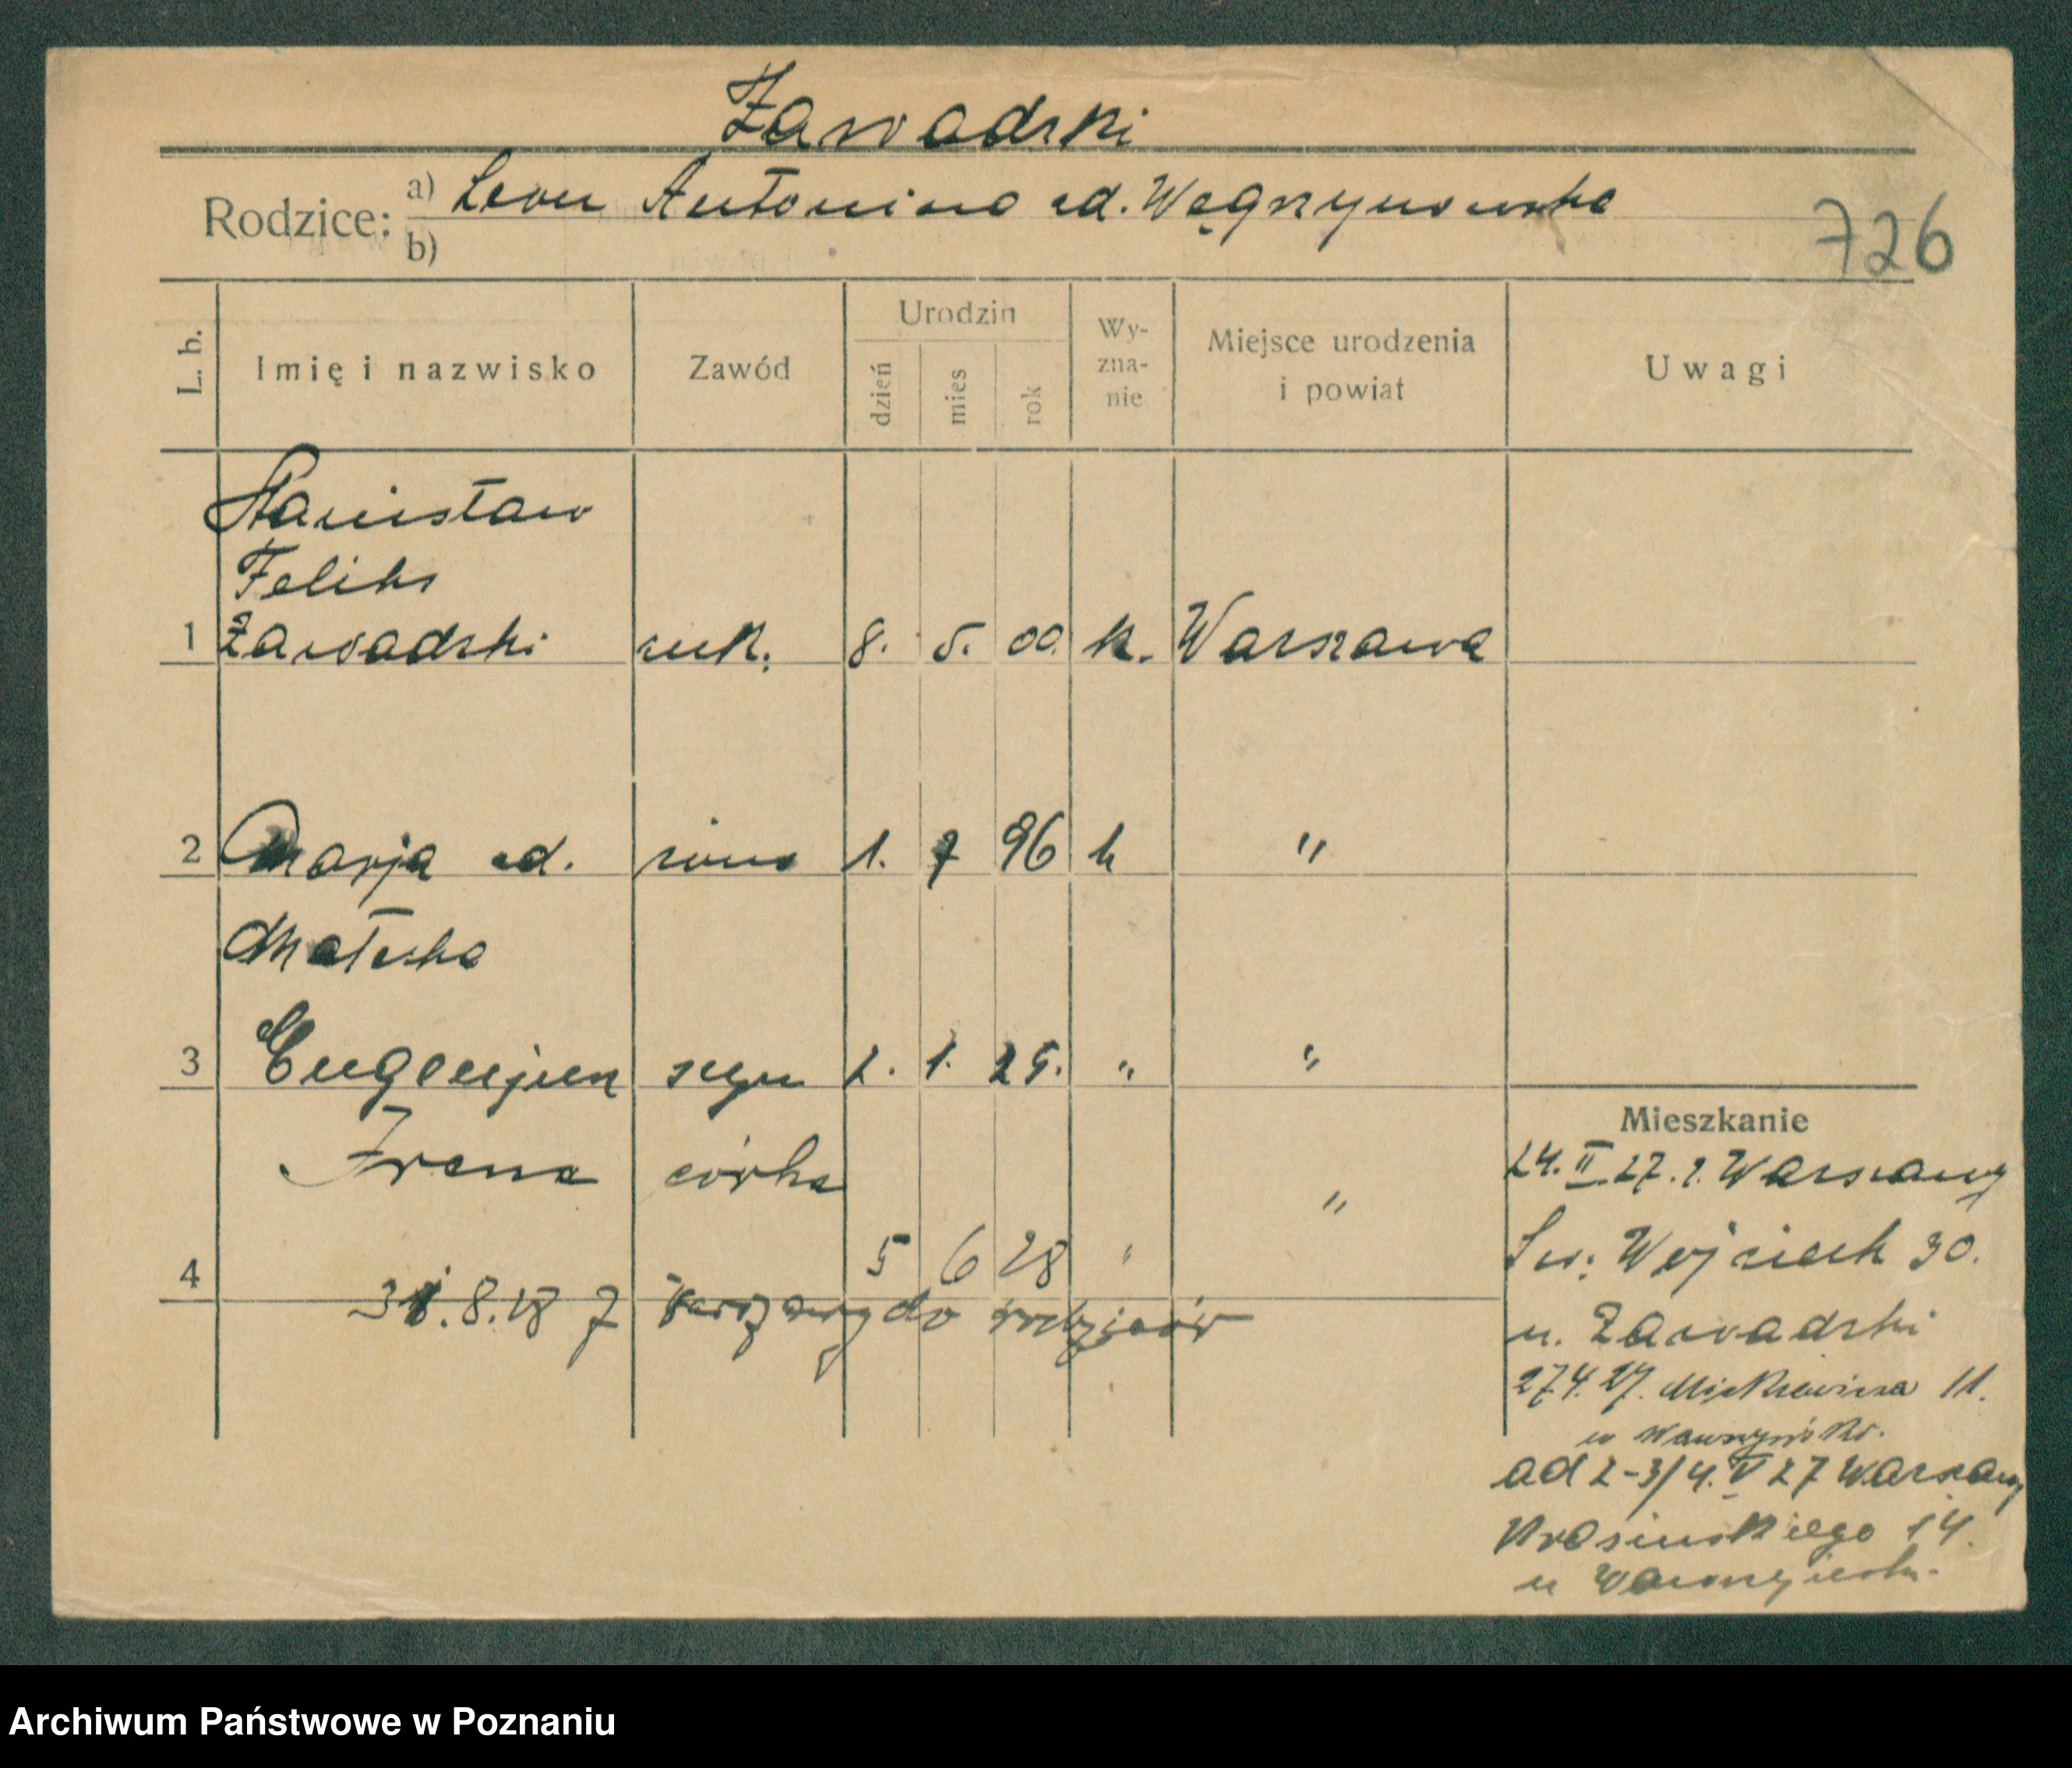 Zawadzki
Rodzice: a) Leon Antonina zd. Węgrzynowska
b)
726
L. b. Imię i nazwisko Zawód Urodzin dzień mies rok Wyzna-nie Miejsce urodzenia i powiat Uwagi
Stanisław
Feliks
1 Zawadzki 8. 5. 00. k. Warszawa
2 Marja zd. żona 1. 7 96 k "
Mateska
3 Eugenjusz syn 2. 1. 25. " "
Irena córka "
4 5 6 28 "
31.8.28 z Warszawy do rodziców
Mieszkanie
24.II.27. z. Warszawy
Św. Wojciech 30.
u. Zawadzki
27.4.27. Mickiewicza 11.
ad 2-3/4.V 27 Warszawy
Krasińskiego 14.
u
Archiwum Państwowe w Poznaniu